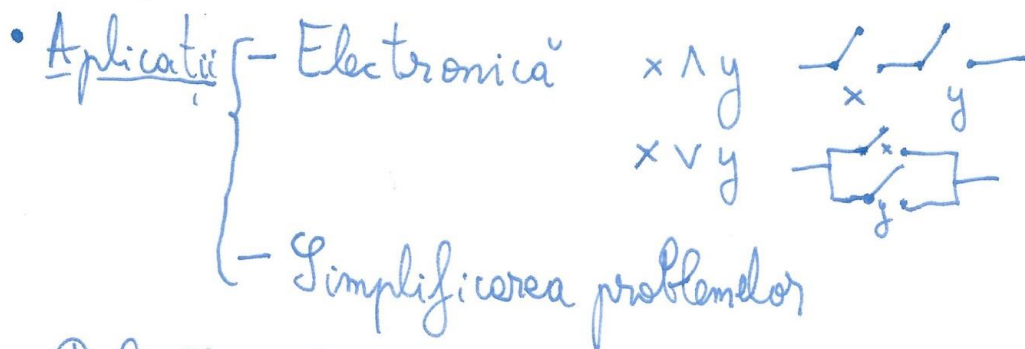 • Aplicații { – Electronică x ∧ y x y
x ∨ y x y
– Simplificarea problemelor